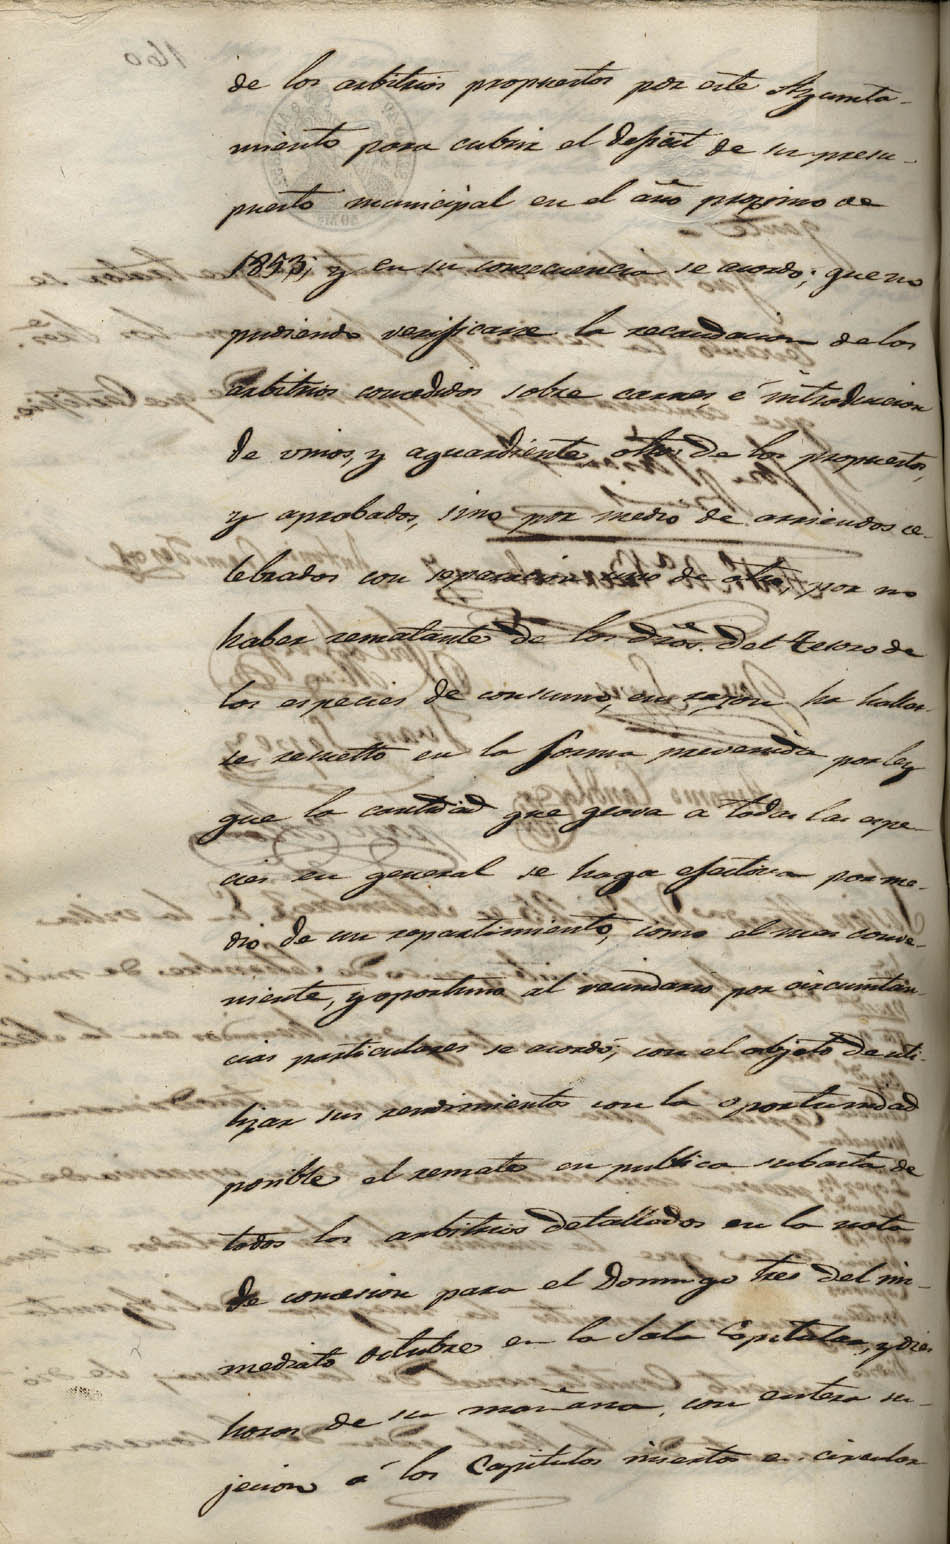 de los arbitrios propuestos por este Ayunta-
miento para cubrir el deficit de su presu-
puesto municipal en el año proximo de
1853; y en su consecuencia se acordo; que no
pudiendo verificarse la recaudacion de los
arbitrios concedidos sobre carnes é introducion
de vinos, y aguardiente otros de los propuestos,
y aprobados, sino por medio de arriendos ce-
lebrados con separacion uno de otro, por no
haber rematante de los dros. del tesoro de
las especies de consumo, en razon ha hallar-
se resuelto en la forma prevenida por ley
que la cantidad que grava a todas las espe-
cies en general se haga efectiva por me-
dio de un repartimiento, como el mas conve-
niente, y oportuno al vecindario por circunstan-
cias particulares se acordó; con el objeto de uti-
lizar sus rendimientos con la oportunidad
posible el remate en publica subasta de
todos los arbitrios detallados en la nota
de concesion para el Domingo tres del in-
mediato Octubre en la Sala Capitular, y diez
horas de su mañana, con entera su-
jecion á los Capitulos insertos en circular